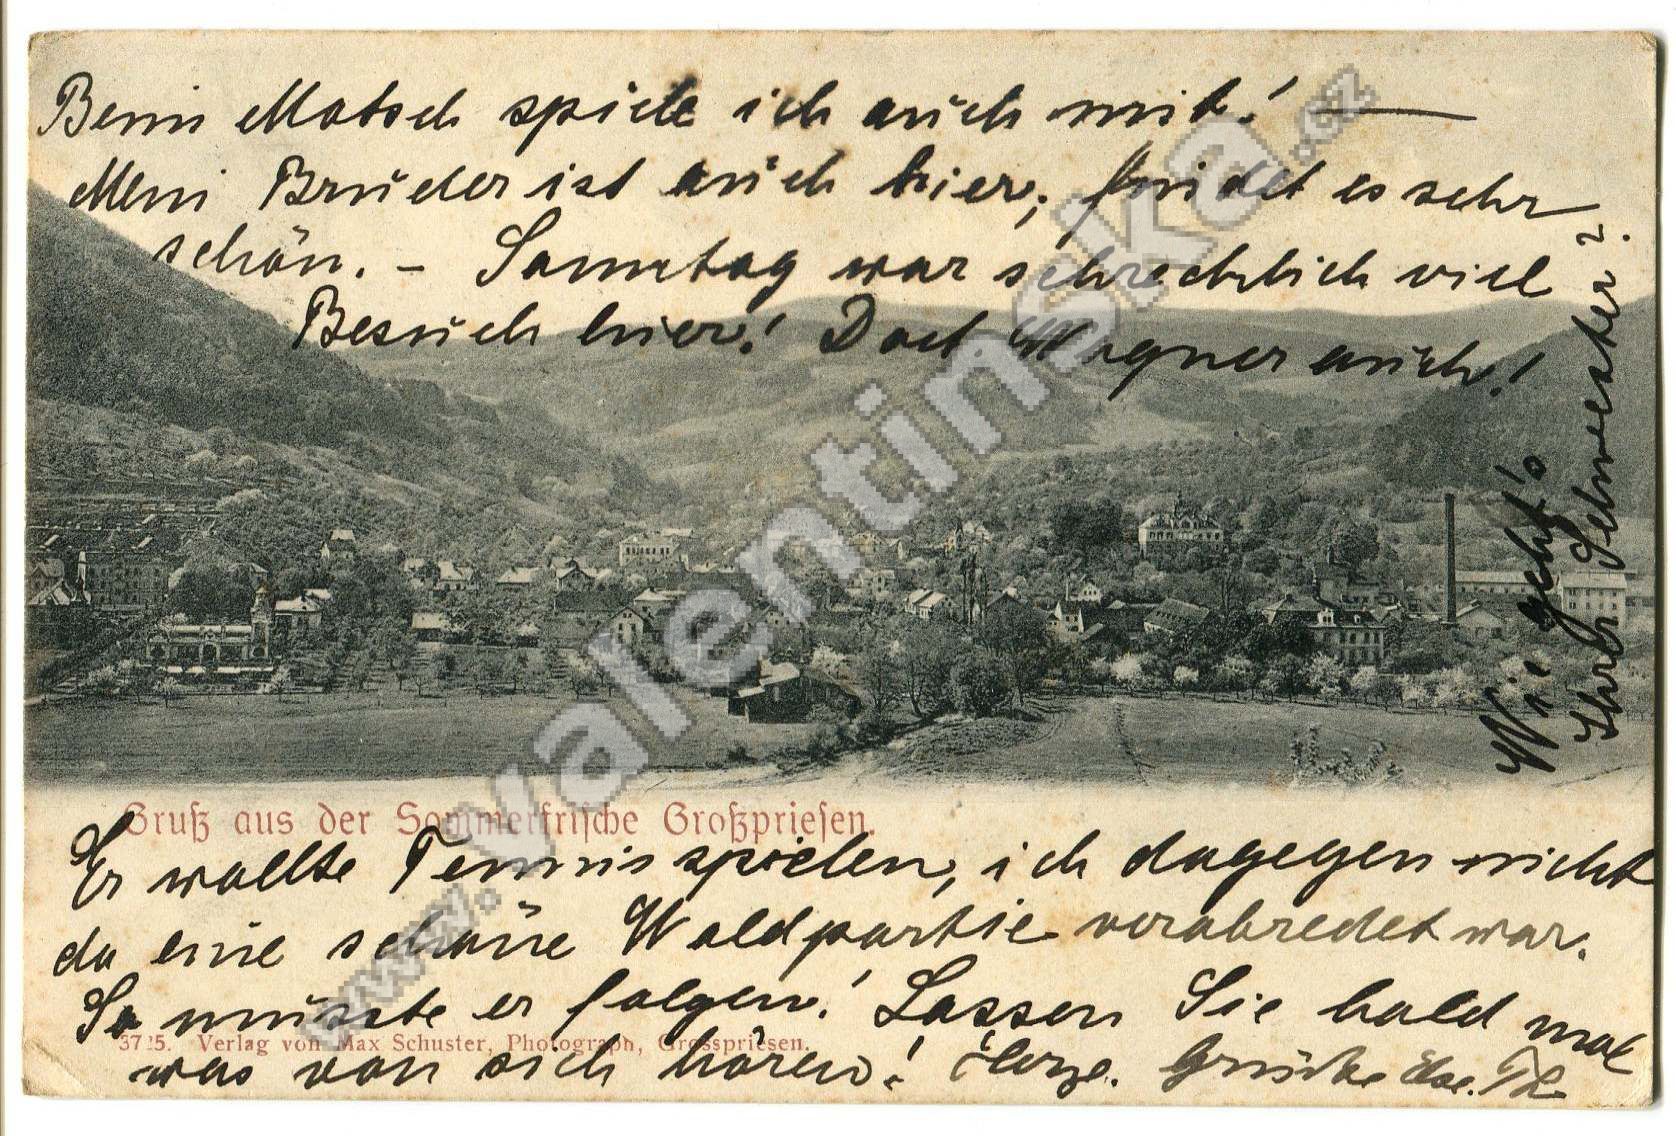 Beim Matsch spiele ich auch mit! —
Mein Bruder ist auch hier, findet es sehr
schön. – Samstag war schrecklich viel
Besuch hier! Doct. Wagner auch!
Wie geht's
Ihrer Schwester?
Gruß aus der Sommerfrische Großpriesen.
Er wollte Tennis spielen, ich dagegen nicht
da eine schöne Waldpartie verabredet war.
So musste er folgen! Lassen Sie bald mal
3725. Verlag von Max Schuster, Photograph, Grosspriesen.
was von sich hören! Herzl. Grüsse
www.valentinska.cz